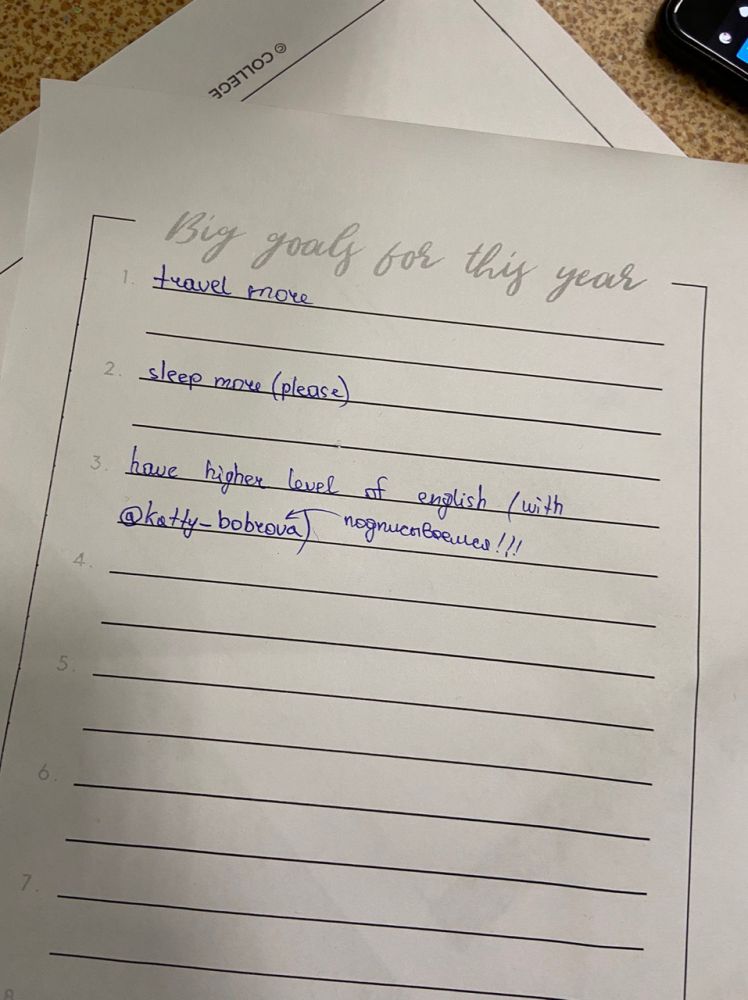 © COLLEGE
Big goals for this year
1. travel more
2. sleep more (please)
3. have higher level of english (with
@katty_bobrova) подписываемся!!!
4.
5.
6.
7.
8